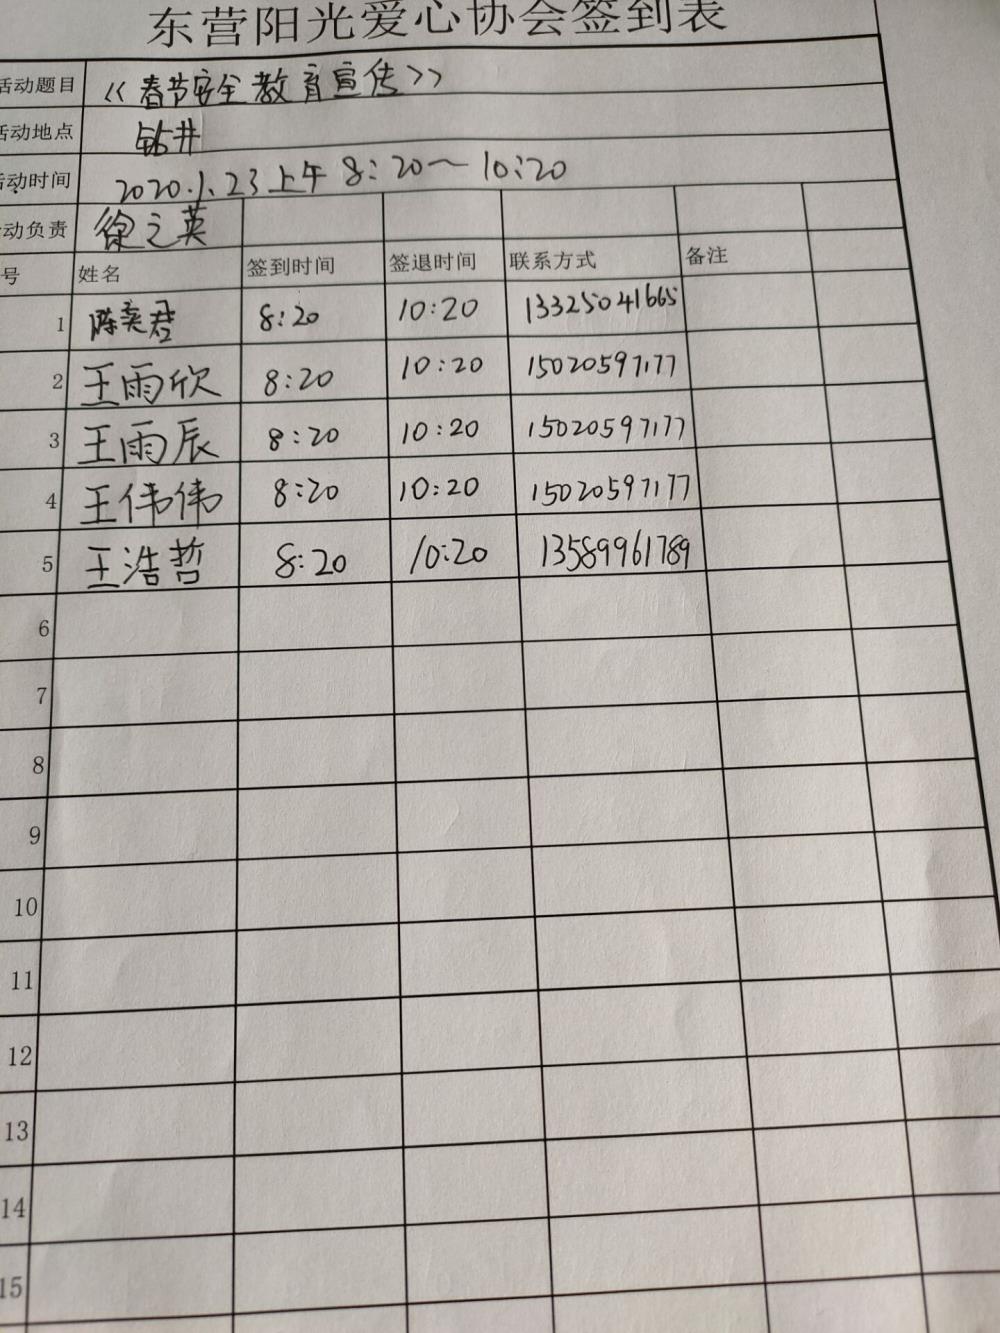 东营阳光爱心协会签到表
活动题目 《春节安全教育宣传》
活动地点 钻井
活动时间 2020.1.23上午 8:20~10:20
动负责 徐之英
号 姓名 签到时间 签退时间 联系方式 备注
1 陈奕君 8:20 10:20 13325041665
2 王雨欣 8:20 10:20 15020597177
3 王雨辰 8:20 10:20 15020597177
4 王伟伟 8:20 10:20 15020597177
5 王浩哲 8:20 10:20 13589961789
6
7
8
9
10
11
12
13
14
15